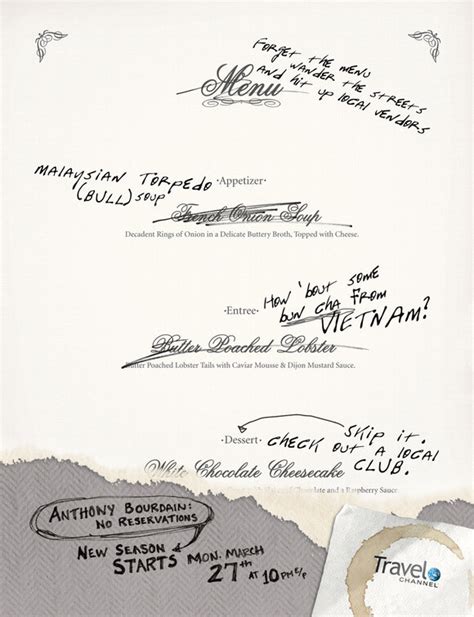 Menu
Forget the menu
wander the streets
and hit up local
vendors
Malaysian Torpedo
(Bull) Soup
·Appetizer·
French Onion Soup
Decadent Rings of Onion in a Delicate Buttery Broth, Topped with Cheese.
How 'bout some
bun cha from
Vietnam?
·Entree·
Butter Poached Lobster
Butter Poached Lobster Tails with Caviar Mousse & Dijon Mustard Sauce.
·Dessert·
Skip it.
Check out a local
club.
White Chocolate Cheesecake
Chocolate and a Raspberry Sauce
Anthony Bourdain:
No Reservations
New Season
Starts Mon. March
27th at 10PM E/P
Travel
CHANNEL